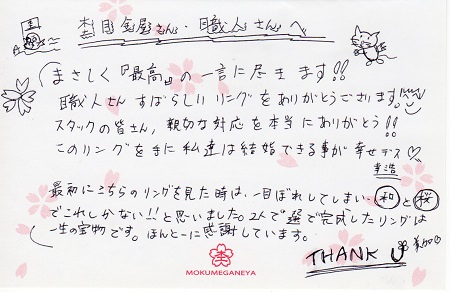 杢目金屋さん・職人さんへ
まさしく『最高』の一言に尽きます!!
職人さんすばらしいリングをありがとうございます
スタッフの皆さん、親切な対応を本当にありがとう!!
このリングを手に私達は結婚できる事が幸せデス♡
最初にこちらのリングを見た時は、一目ぼれしてしまい、和と桜
でこれしかない!!と思いました。2人で選で完成したリングは
一生の宝物です。ほんとーに感謝しています。
THANK U
MOKUMEGANEYA